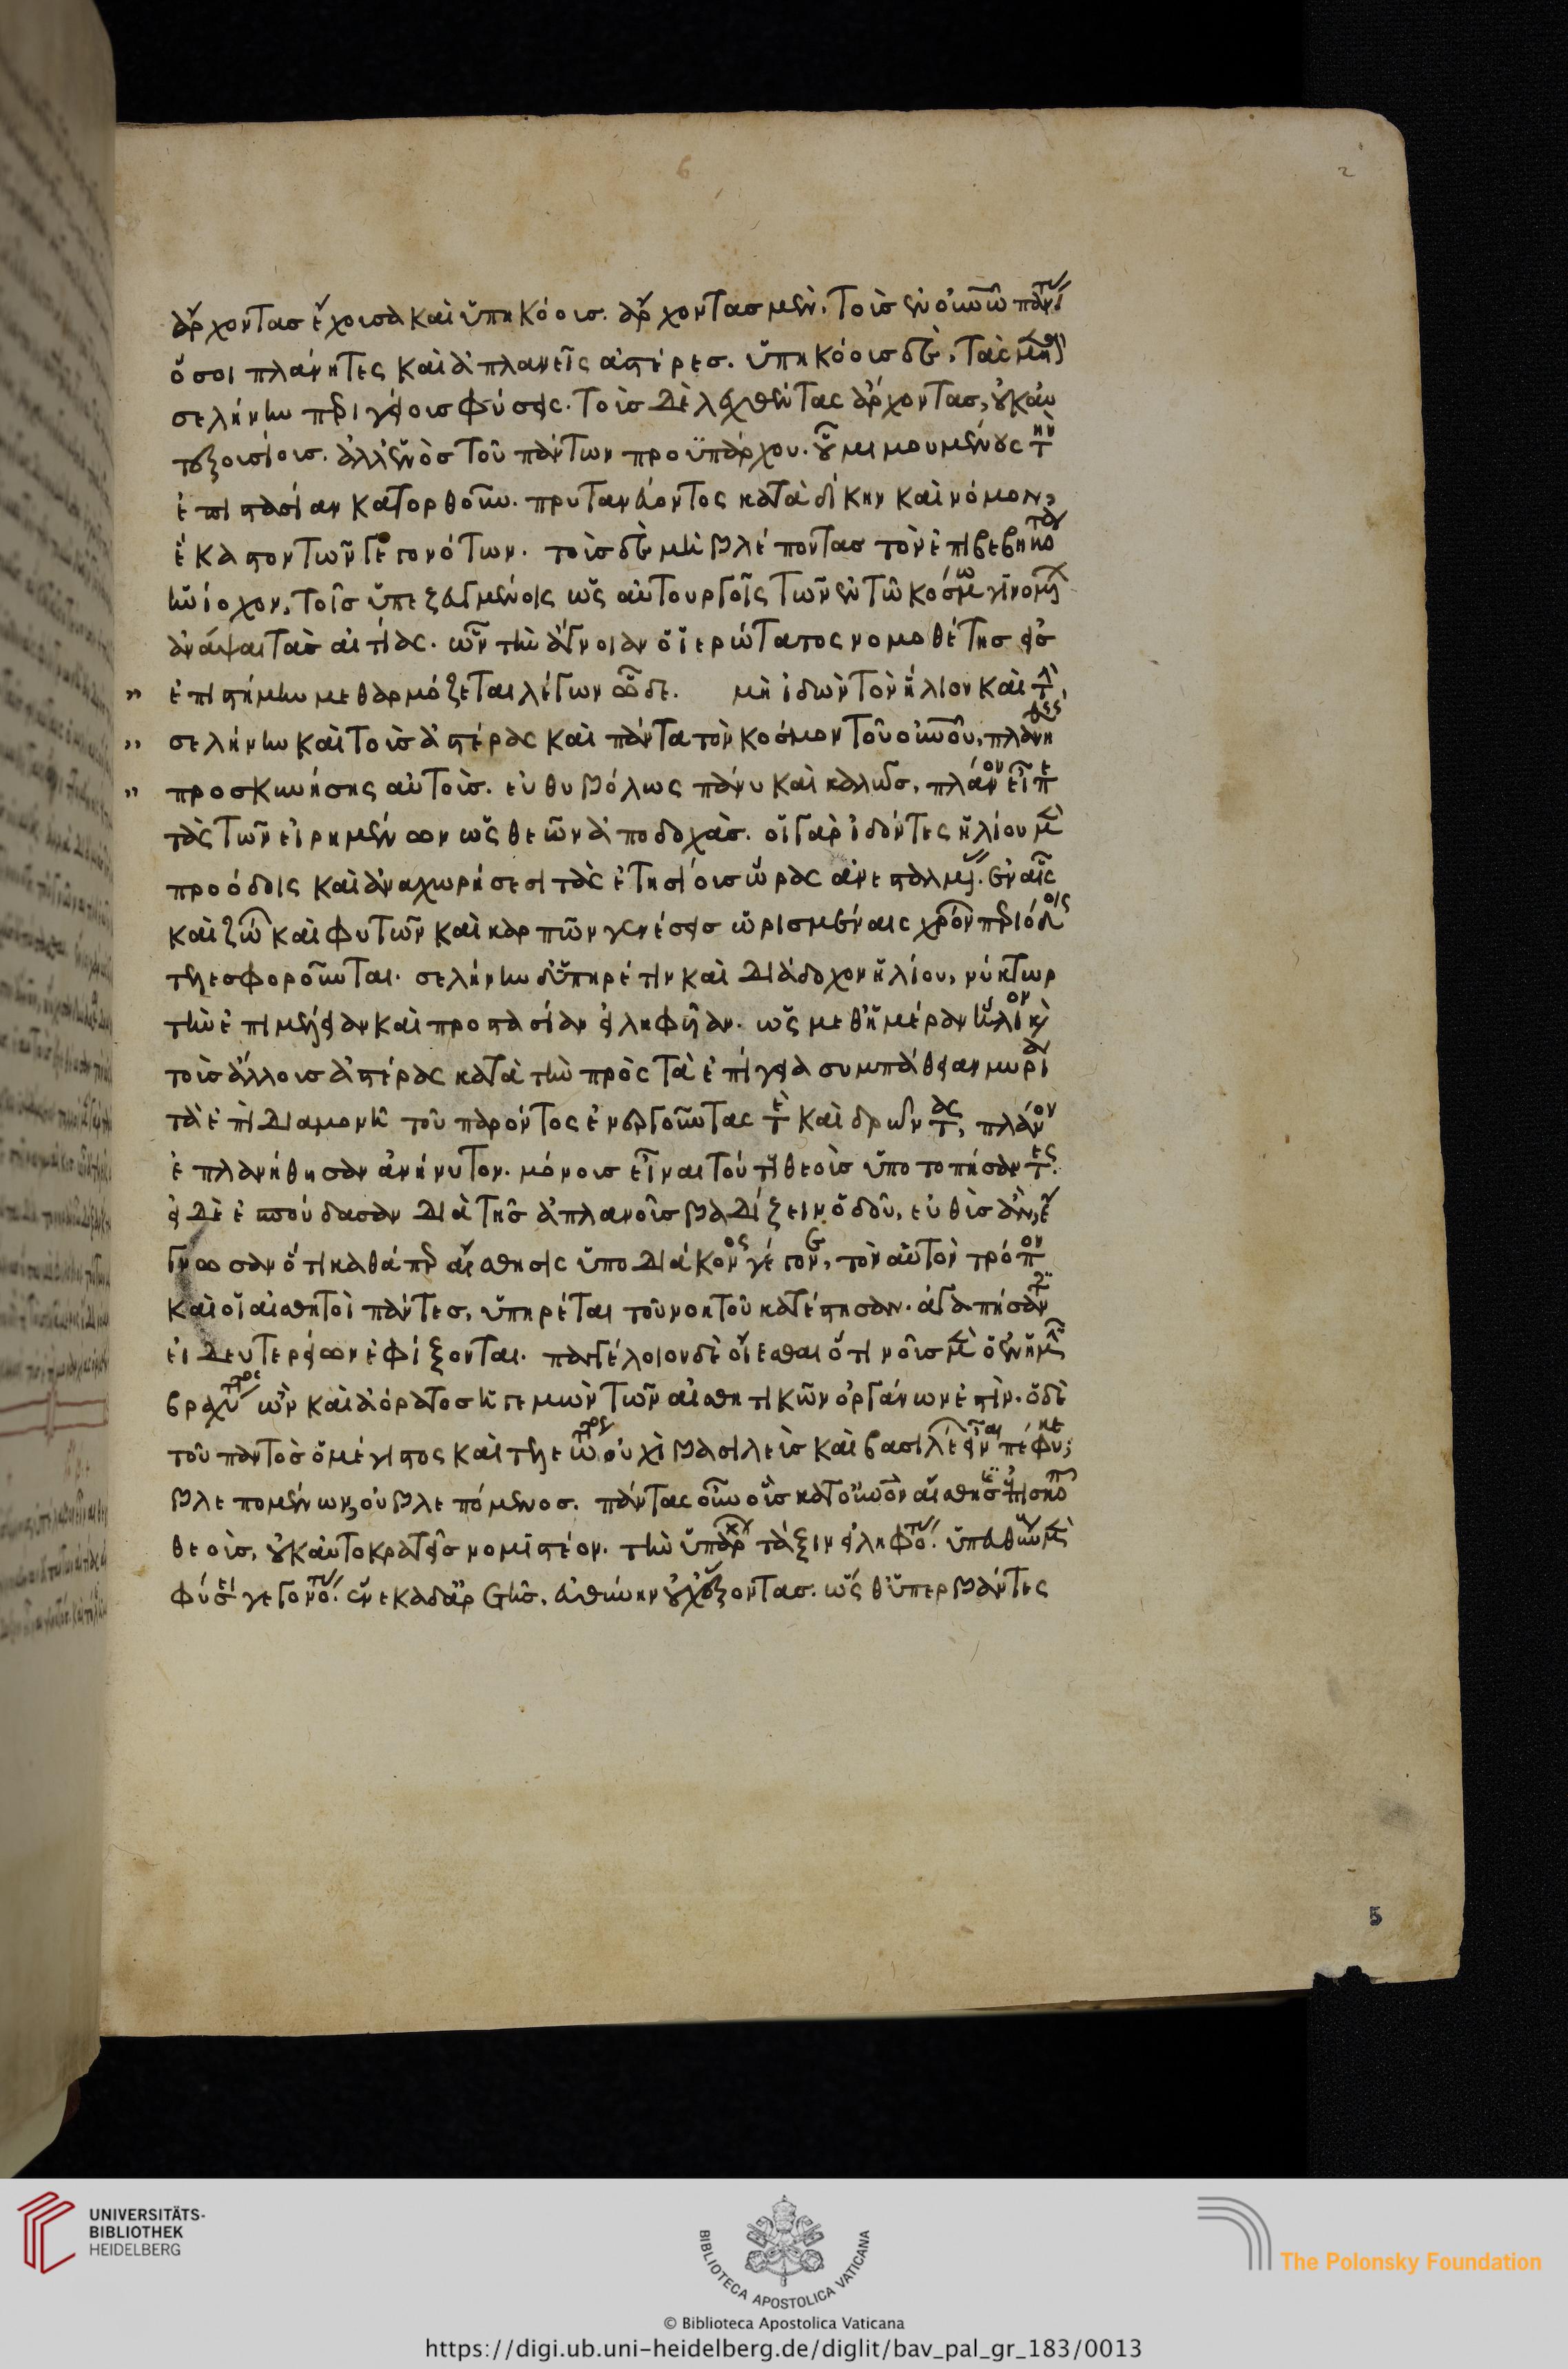 6
2
ἄρχοντας ἔχουσα καὶ ὑπηκόους. ἄρχοντας μὲν, τοὺς ἐν οὐνῶ πάντ(ας)
ὅσοι πλάνητες καὶ ἀπλανεῖς ἀστέρες. ὑπηκόους δὲ, τὰς μετὰ
σελήνην περιγείους φύσεις. τοὺς δὲ λεχθέντας ἄρχοντας, οὐκ αὐ
τεξουσίους. ἀλλ' ἑνὸς τοῦ πάντων προϋπάρχου. οὗ μιμουμένους τὴν
ἐπιστασίαν κατορθοῦν. πρυτανεύοντος κατὰ δίκην καὶ νόμον,
ἕκαστον τῶν γεγονότων. τοὺς δὲ μὴ βλέποντας τὸν ἐπιβεβηκότα
ἡνίοχον, τοῖς ὑπεζευγμένοις ὡς αὐτουργοῖς τῶν ἐν τῶ κόσμω γινομέν(ων)
ἀνάψαι τὰς αἰτίας. ὧν τὴν ἄγνοιαν ὁ ἱερώτατος νομοθέτης εἰς
" ἐπιστήμην μεθαρμόζεται λέγων ὧδε. μὴ ἰδὼν τὸν ἥλιον καὶ τὴν,
" σελήνην καὶ τοὺς ἀστέρας καὶ πάντα τὸν κόσμον τοῦ οὐνοῦ, πλανηθεὶς
" προσκυνήσης αὐτοῖς. εὐθυβόλως πάνυ καὶ καλῶς, πλάνον εἶπε
τὰς τῶν εἰρημένων ὡς θεῶν ἀποδοχάς. οἱ γὰρ ἰδόντες ἡλίου μὲν
προόδοις καὶ ἀναχωρήσεσι τὰς ἐτησίους ὥρας συνεσταλμέν(ας). ἐν αἷς
καὶ ζώ(ων) καὶ φυτῶν καὶ καρπῶν γενέσεις ὡρισμέναις χρόν(ων) περιόδοις
τελεσφοροῦνται. σελήνην δ' ὑπηρέτιν καὶ διάδοχον ἡλίου, νύκτωρ
τὴν ἐπιμέλειαν καὶ προστασίαν εἰληφυῖαν. ὧς μεθ' ἡμέραν ἥλιον καὶ
τοὺς ἄλλους ἀστέρας κατὰ τὴν πρὸς τὰ ἐπίγεια συμπάθειαν μυρία
τὰ ἐπὶ διαμονῆ τοῦ παρόντος ἐνεργοῦντας τὲ καὶ δρῶντας, πλάνον
ἐπλανήθησαν ἀνήνυτον. μόνους εἶναι τούτους θεοὺς ὑποτοπήσαντες.
εἰ δὲ ἐσπούδασαν διὰ τῆς ἀπλανοῦς βαδίζειν ὁδοῦ, εὐθὺς ἂν, ἔ
γνωσαν ὅτι καθάπερ αἴσθησις ὑποδιάκονος γέγονε, τὸν αὐτὸν τρόπον
καὶ οἱ αἰσθητοὶ πάντες, ὑπηρέται τοῦ νοητοῦ κατέστησαν. ἀγαπήσαντ(ες)
εἰ δευτερείων ἐφίξονται. παγγέλοιον δὲ οἴεσθαι ὅτι νοῦς μὲν ὁ ἐν ἡμῖν
βραχύτατος ὢν καὶ ἀόρατος ἡγεμὼν τῶν αἰσθητικῶν ὀργάνων ἐστίν. ὁ δὲ
τοῦ παντὸς ὁ μέγιστος καὶ τελεώτατος οὐχὶ βασιλεὺς καὶ βασιλέων εἶναι πέφυκε;
βλεπομένων, οὐ βλεπόμενος. πάντας οὖν οὓς κατ' οὐνὸν αἴσθησις ἐπισκοπεῖ
θεοὺς, οὐκ αὐτοκρατεῖς νομιστέον. τὴν ὑπάρχων τάξιν εἰληφότ(ας). ὑπευθύνους μὲν
φύσει γεγονότ(ας). ἕνεκα δ' ἀρετῆς, εὐθύνην οὐχ' ὑφέξοντας. ὥσθ' ὑπερβάντες
5
UNIVERSITÄTS-
BIBLIOTHEK
HEIDELBERG
BIBLIOTECA APOSTOLICA VATICANA
The Polonsky Foundation
© Biblioteca Apostolica Vaticana
https://digi.ub.uni-heidelberg.de/diglit/bav_pal_gr_183/0013